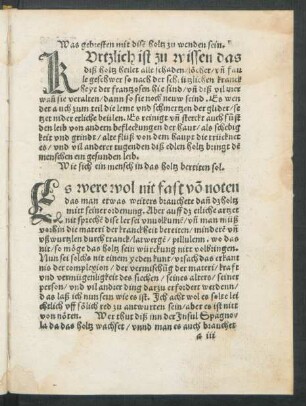 Was gebresten mit dise holtz zu wenden sein.
KUrtzlich ist zu wissen das
diß holtz heilet alle schäden/löcher/vñ fau
le geschwer so nach der schützlichen kranck
heyt der frantzosen hie sind/vñ diß vil mer
wañ sie veralten/dann so sie noch neuw seind. Es wen
det auch zum teil die leme und schmertzen der glider/se
tzet nider etliche beülen. Es reinigt vñ sterckt auch fast
den leib von andern befleckungen der haut/als schebig
keit vnd grindt/alle fluß von dem haupt die
vnd vil anderer tugenden diß edlen holtz bringt dē
menschen ein gesunden leib.
Wie sich ein mensch in das holtz bereiten sol.
Es were wol nit fast vō nöten
das man etwas weiters brauchete dañ dz holtz
mitt seiner ordenung. Aber auff dz etliche artzet
nit sprechē diß ler sei vnuolkumē/vñ man muß
vorhin die materi der kranckheit bereiten/mindern vñ
vßwurtzlen durch tranck/latwerg/pillulein. wo das
nit/so möge das holtz sein würckung nit volbringen.
Nun sei solchs nit einem yeden kunt/vrsach das erkant
nis der complexion/der vermischung der materi/krafft
vnd vermüglichkeit des siechen/seines alters/seiner
person/vnd vil ander ding darzu erfordert werdenn/
das laß ich nun sein wie es ist. Ich acht wol es solte lei
chtlich vff sölich red zu antwurten sein/aber es ist nitt
von nöten. Wer thut diß inn der Insul Spagno-
la da das holtz wachset/vnnd man es auch brauchet
a iii